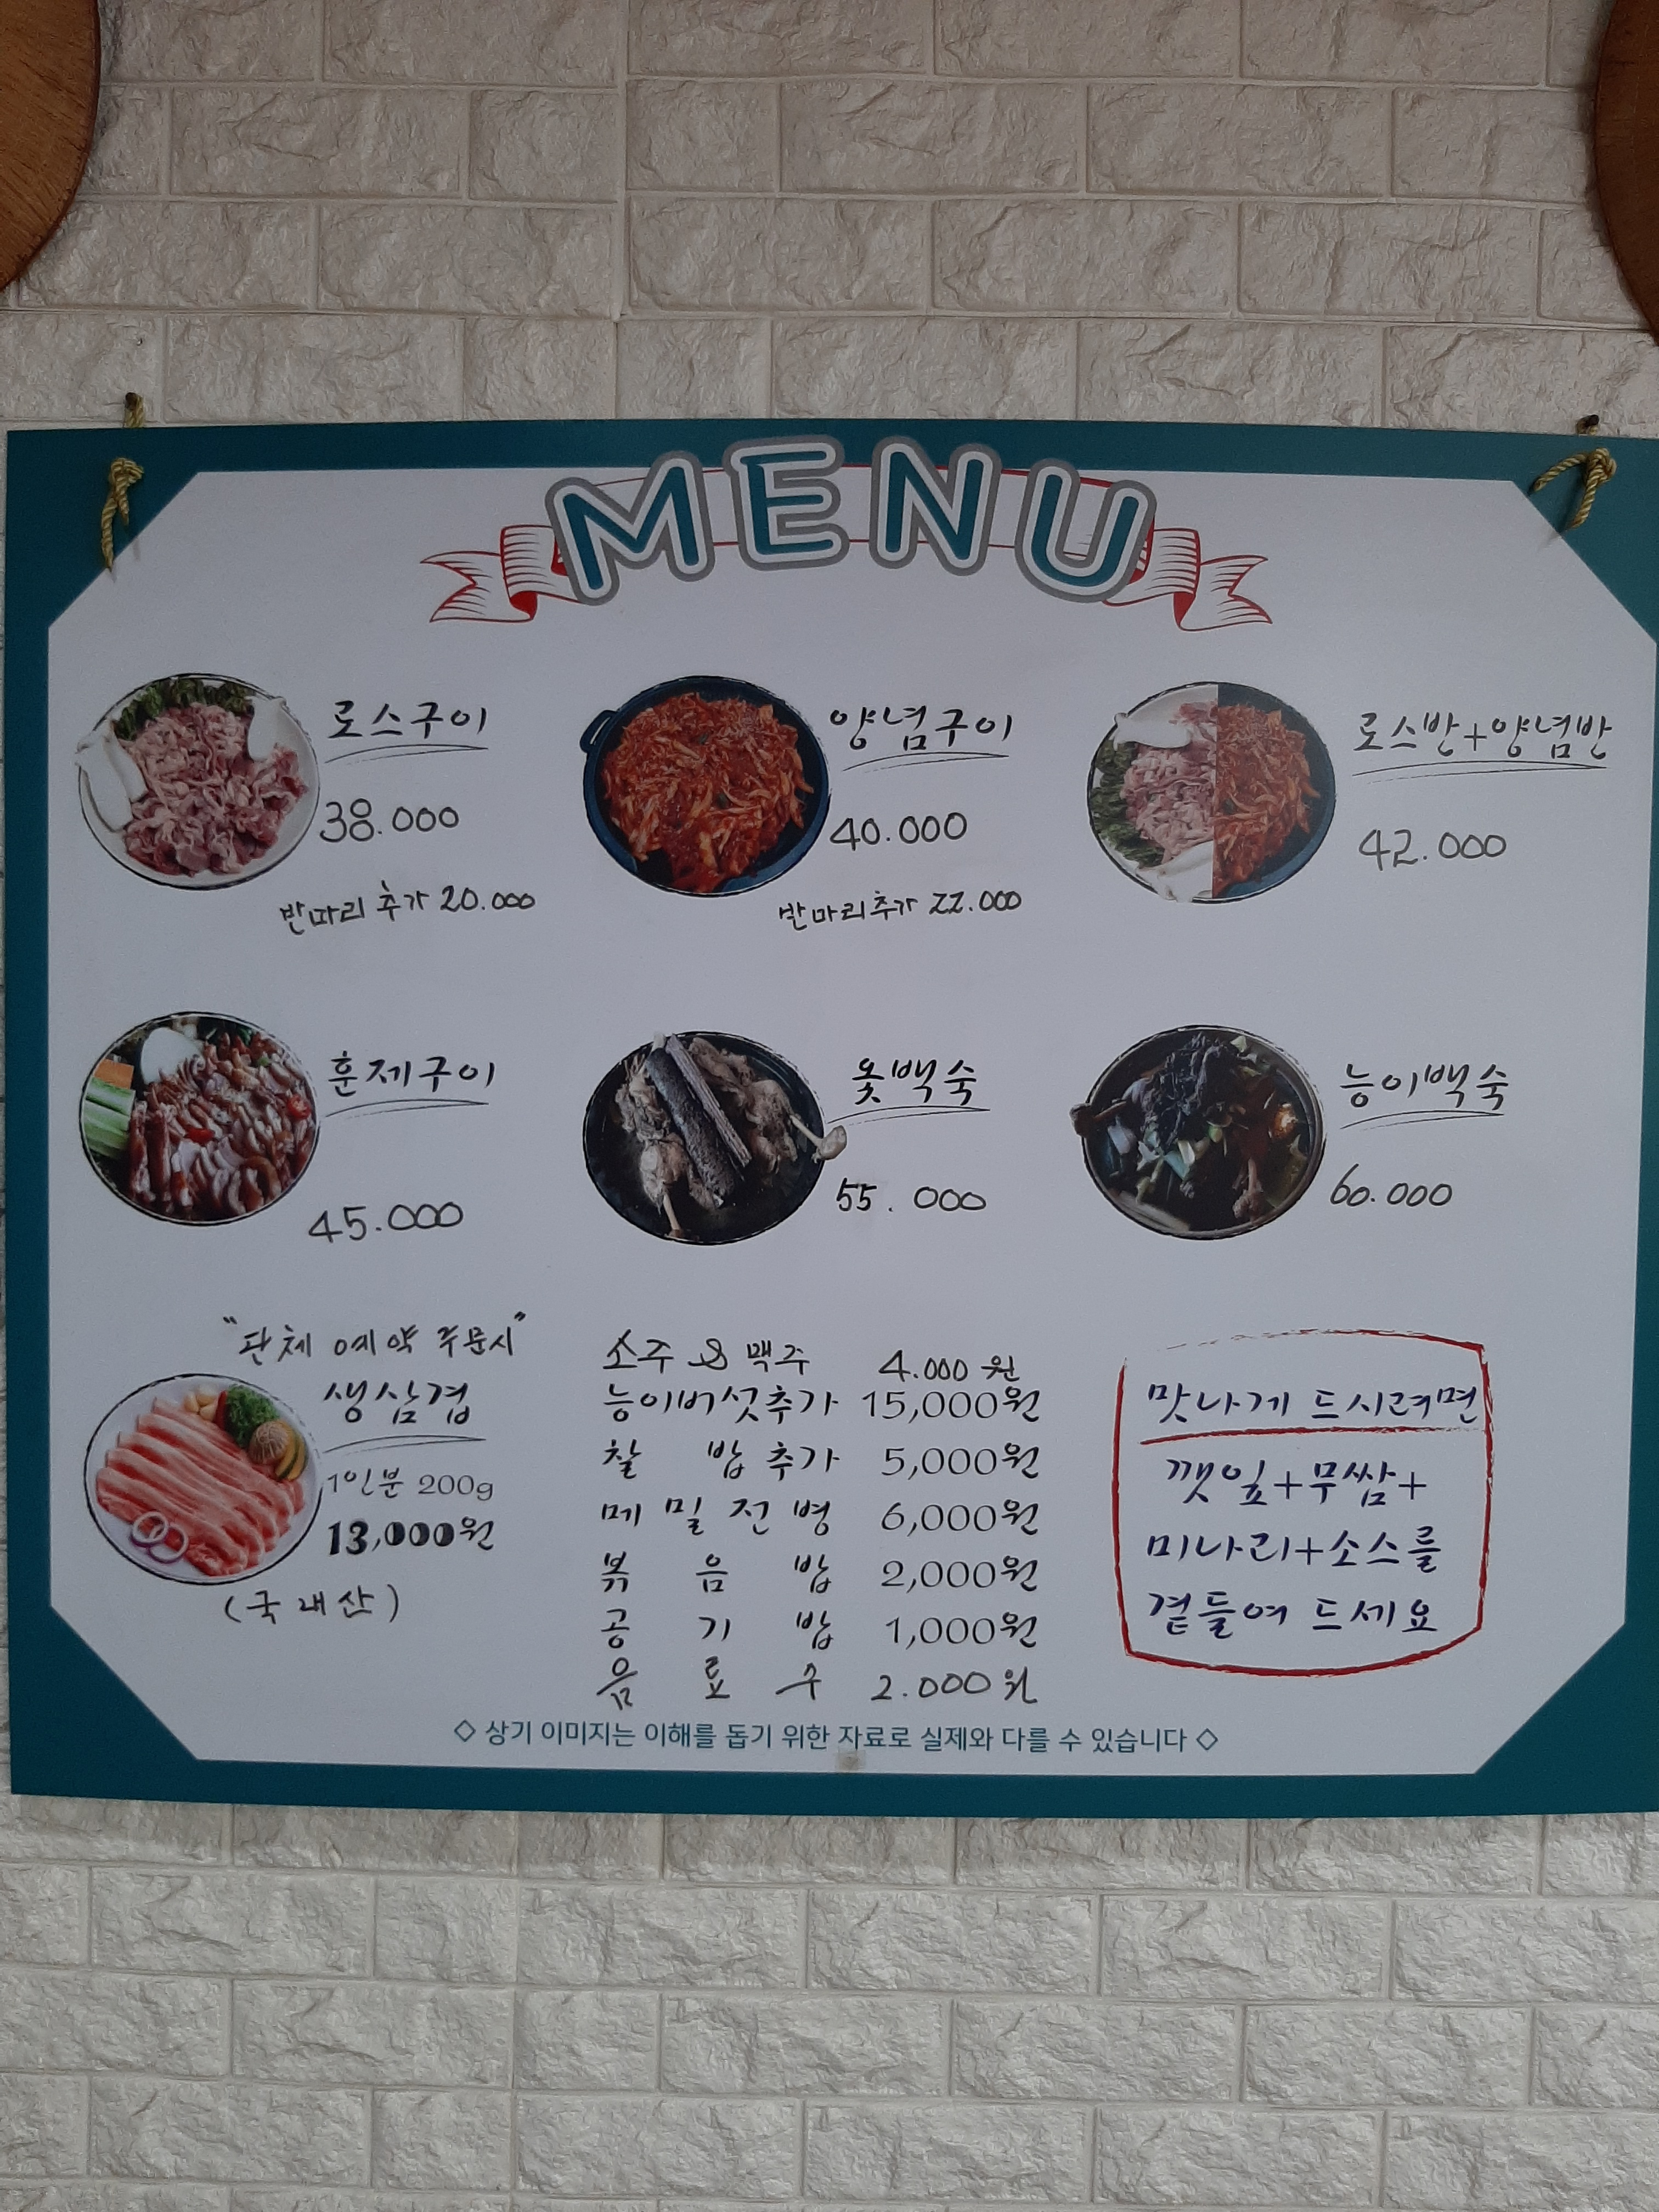 MENU
로스구이
38.000
반마리 추가 20.000
양념구이
40.000
반마리추가 22.000
로스반+양념반
42.000
훈제구이
45.000
옻백숙
55.000
능이백숙
60.000
"단체 예약 주문시"
생삼겹
1인분 200g
13,000원
(국내산)
소주 & 맥주 4.000 원
능이버섯추가 15,000원
찰 밥추가 5,000원
메 밀 전 병 6,000원
볶 음 밥 2,000원
공 기 밥 1,000원
음 료 수 2.000원
맛나게 드시려면
깻잎+무쌈+
미나리+소스를
곁들여 드세요
◇ 상기 이미지는 이해를 돕기 위한 자료로 실제와 다를 수 있습니다 ◇